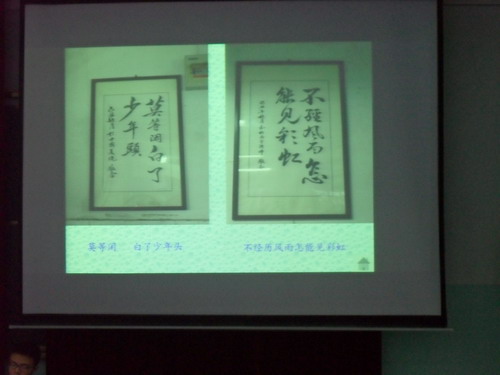 莫等闲白了
少年頭
不經風雨怎
能見彩虹
莫等闲 白了少年头
不经历风雨怎能见彩虹